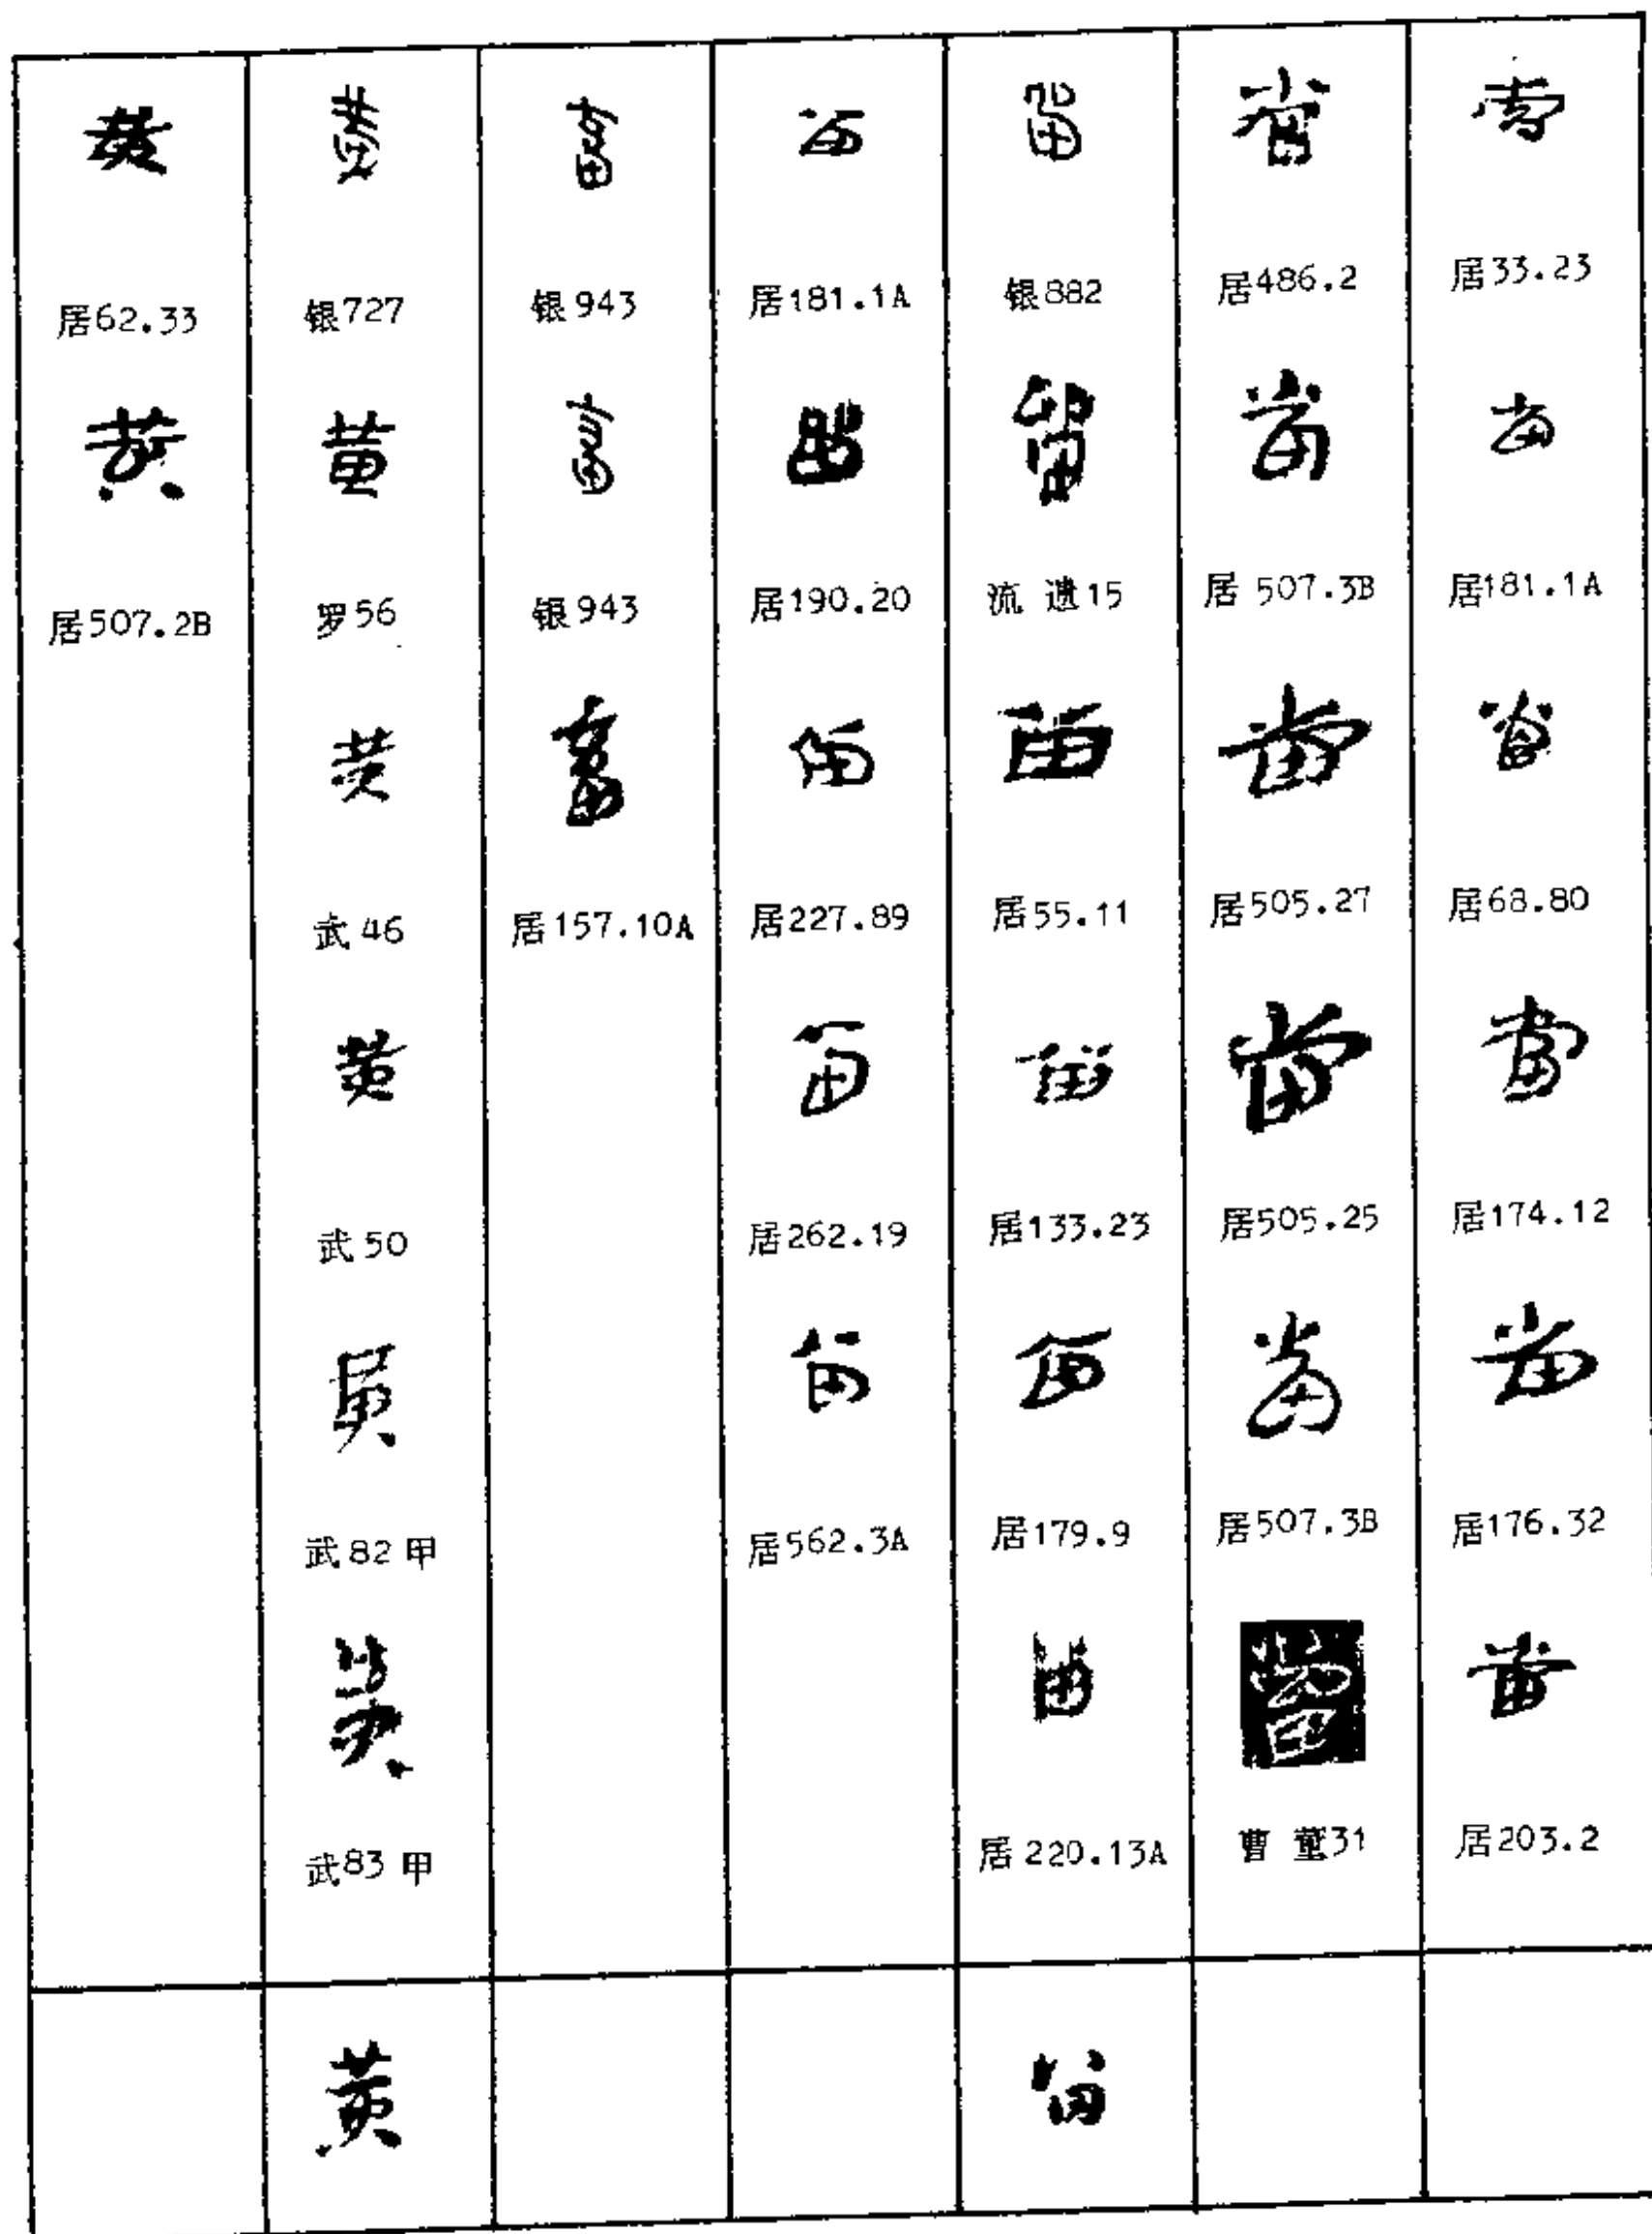 當
居33.23
當
居181.1A
當
居68.80
當
居174.12
當
居176.32
當
居203.2
當
居486.2
當
居507.3B
當
居505.27
當
居505.25
當
居507.3B
當
曹 31
留
银882
留
流 遗15
留
居55.11
留
居133.23
留
居179.9
留
居220.13A
留
留
居181.1A
留
居190.20
留
居227.89
留
居262.19
留
居562.3A
畜
银943
畜
银943
畜
居157.10A
黄
银727
黄
罗56
黄
武46
黄
武50
黄
武82甲
黄
武83甲
黄
黄
居62.33
黄
居507.2B